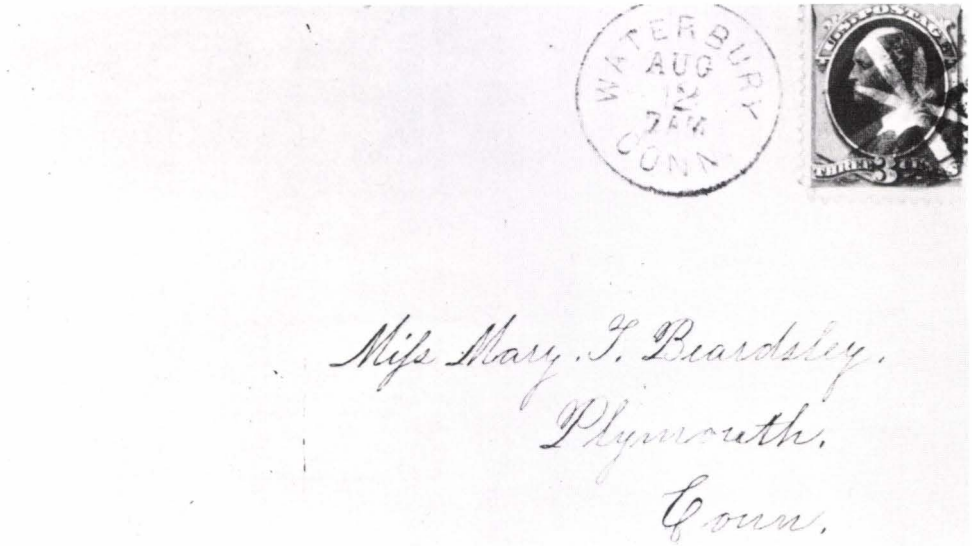 WATERBURY
AUG
12
7 AM
CONN
U.S. POSTAGE
THREE 3 CENTS
Miſs Mary. T. Beardsley.
Plymouth.
Conn.